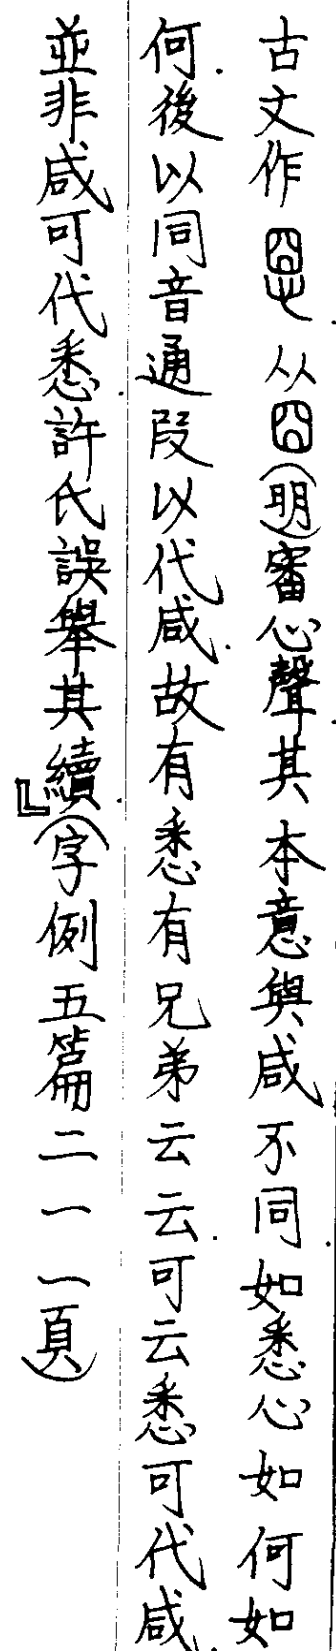 古文作𢛳从囧(明)審心聲其本意與咸不同.如悉心如何如
何.後以同音通叚以代咸.故有悉有兄弟云云.可云悉可代咸.
並非咸可代悉.許氏誤舉其續.』(字例五篇二一一頁)